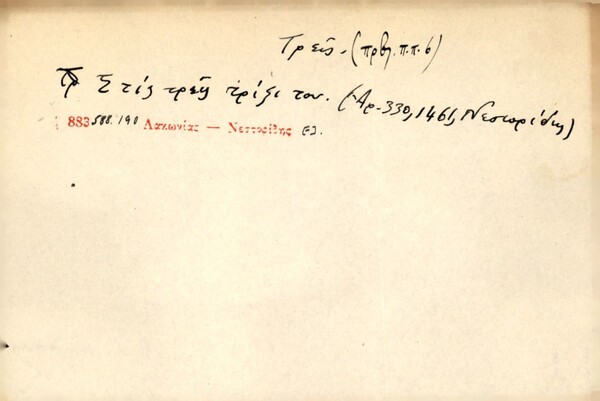 Τρεῖς. (πρβλ. π.π. 6)
Στίς τρεῖς τρίξι του. (Ἀρ. 330, 1461, Νεστορίδης)
883 588.190 Λακωνίας — Νεστορίδης